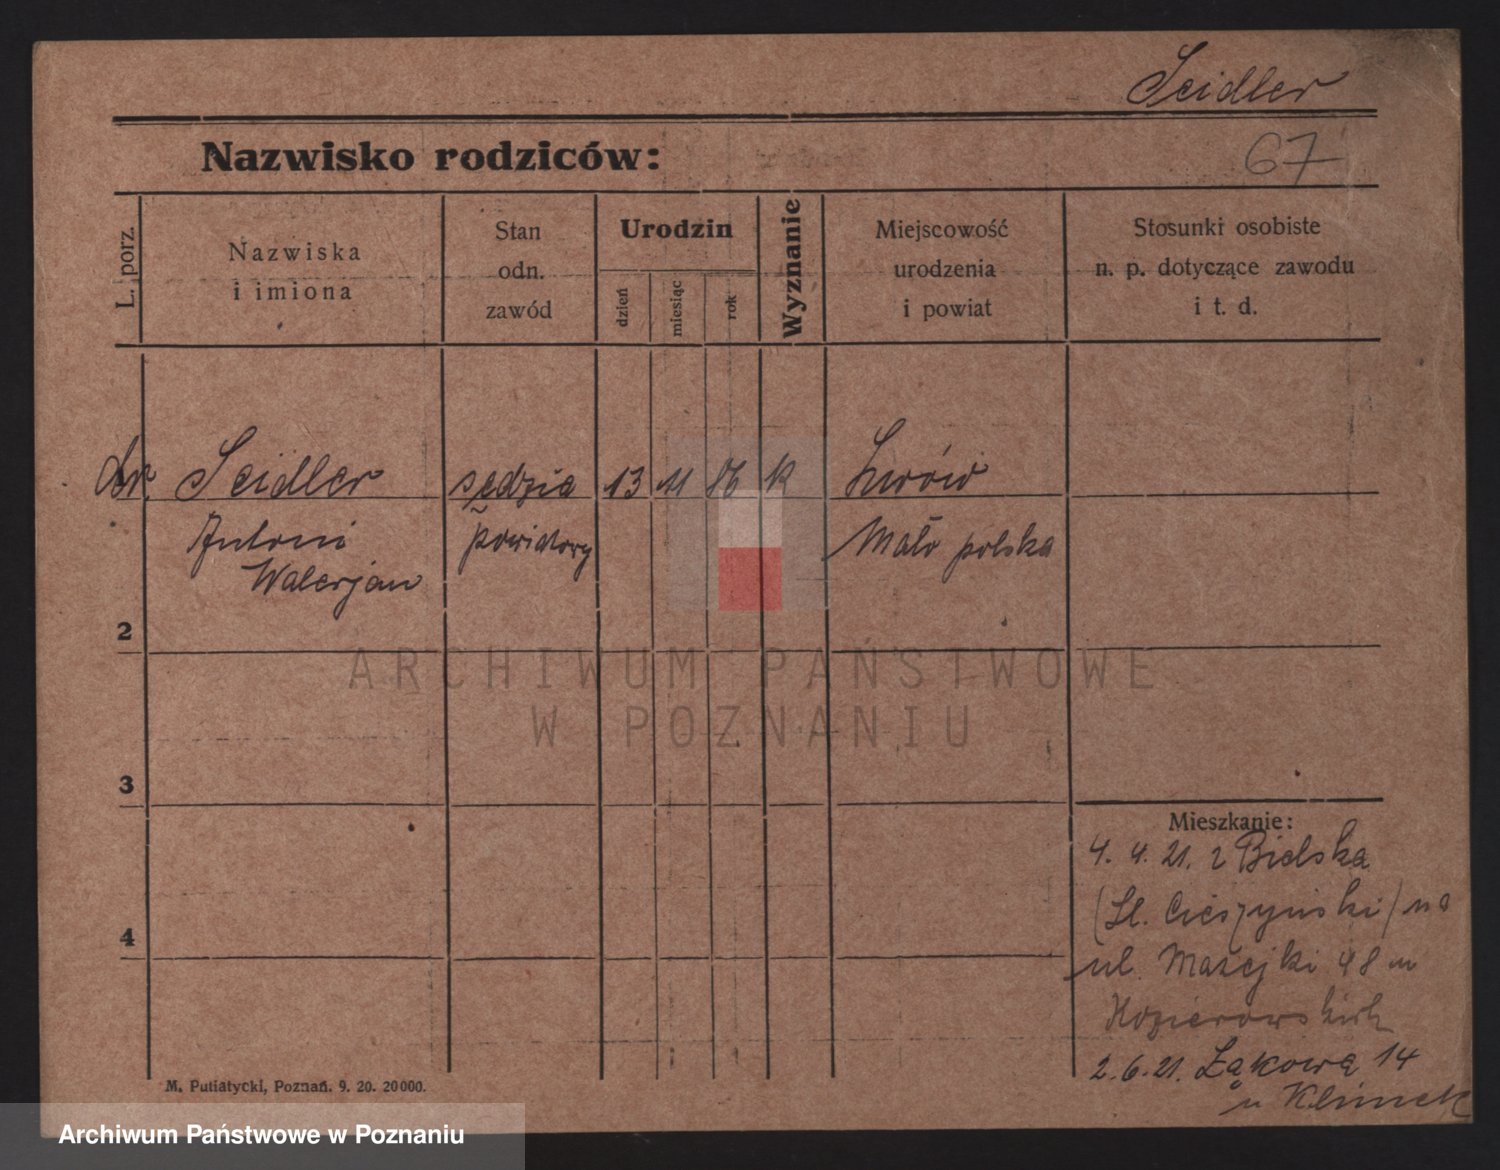 Seidler
Nazwisko rodziców:
67
L. porz.
Nazwiska
i imiona
Stan
odn.
zawód
Urodzin
dzień
miesiąc
rok
Wyznanie
Miejscowość
urodzenia
i powiat
Stosunki osobiste
n. p. dotyczące zawodu
i t. d.
Dr Seidler sędzia 13 11 86 k Lwów
Antoni powiatowy Mało polska
Walerjan
2
ARCHIWUM PAŃSTWOWE
W POZNANIU
3
Mieszkanie:
4. 4. 21. z Bielska
(Śl. Cieszyński) na
4
ul. Matejki 48 u
2.6.21. Łąkowa 14
u Klimek
M. Putiatycki, Poznań. 9. 20. 20000.
Archiwum Państwowe w Poznaniu